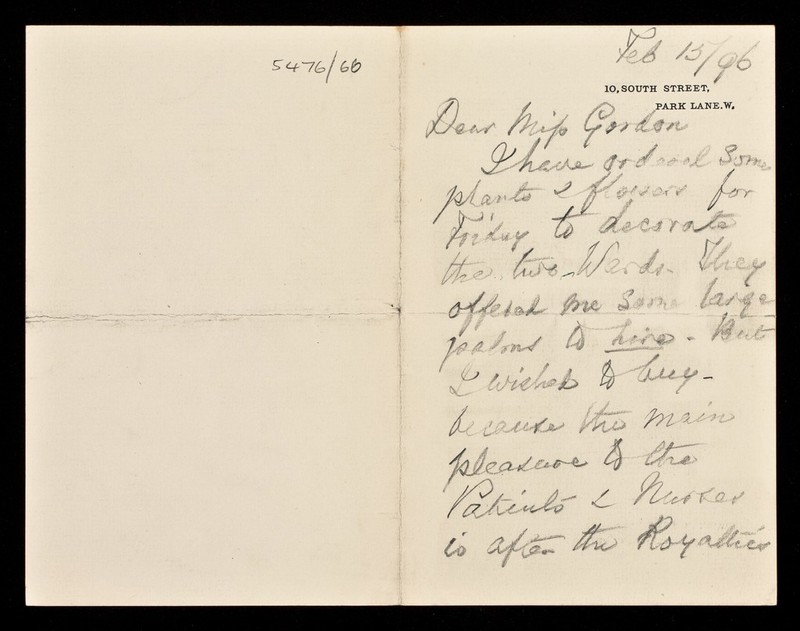 5476/66
Feb 15/96
10, SOUTH STREET,
PARK LANE. W.
Dear Miss Gordon
I have ordered some
plants & flowers for
Friday to decorate
the two Wards. They
offered me some large
palms to hire - But
I wished to buy -
because the main
pleasure to the
Patients & Nurses
is after the Royalties